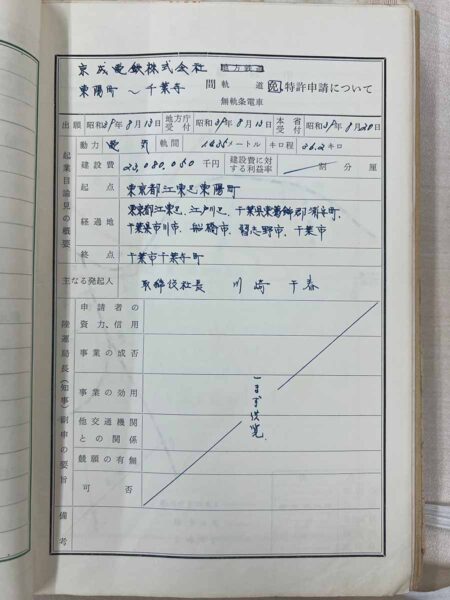 京成電鉄株式会社 地方鉄道
東陽町～千葉寺 間 軌道 免 特許申請について
無軌条電車
出願 昭和39年8月13日 地方庁受付 昭和39年8月13日 本省受付 昭和39年8月20日
起業目論見の概要
動力 電気 軌間 1435メートル キロ程 36.2キロ
建設費 23,080,050千円 建設費に対する利益率 割 分 厘
起点 東京都江東区東陽町
経過地 東京都江東区、江戸川区、千葉県東葛飾郡浦安町、
千葉県市川市、船橋市、習志野市、千葉市
終点 千葉市千葉寺町
主なる発起人 取締役社長 川崎千春
陸運局長(知事)副申の要旨
申請者の資力、信用
事業の成否
事業の効用
他交通機関との関係
競願の有無
可否
供覧
備考